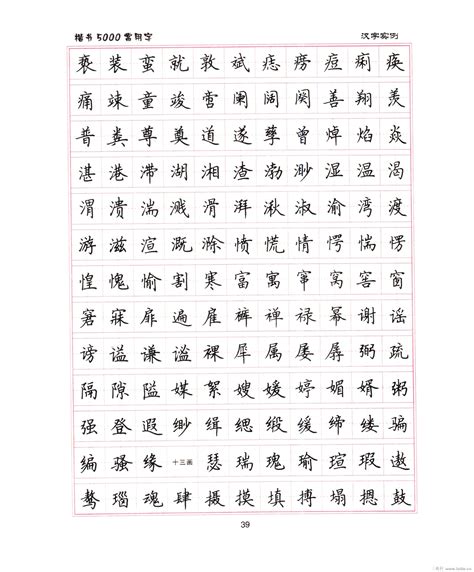 楷书5000常用字 汉字实例
亵装蛮就敦斌痣痨痘痢痪
痛竦童竣啻阑阔阕善翔羡
普粪尊奠道遂孳曾焯焰焱
湛港滞湖湘渣渤渺湿温渴
渭溃湍溅滑湃湫淑渝湾渡
游滋渲溉滁愤慌惰愕惴愣
惶愧愉割寒富寓窜窝窖窗
窘寐扉遍雇裤禅禄幂谢谣
谤谥谦谧裸犀属屡孱弼疏
隔隙隘媒絮嫂媛婷媚婿粥
强登遐缈缉缌缎缓缔缕骗
编骚缘 十三画 瑟瑞瑰瑜瑄瑕遨
骜瑙魂肆摄摸填搏塌摁鼓
39